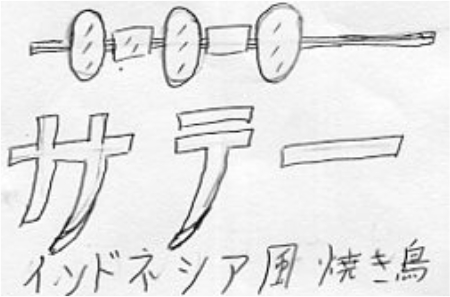 サテー
インドネシア風焼き鳥